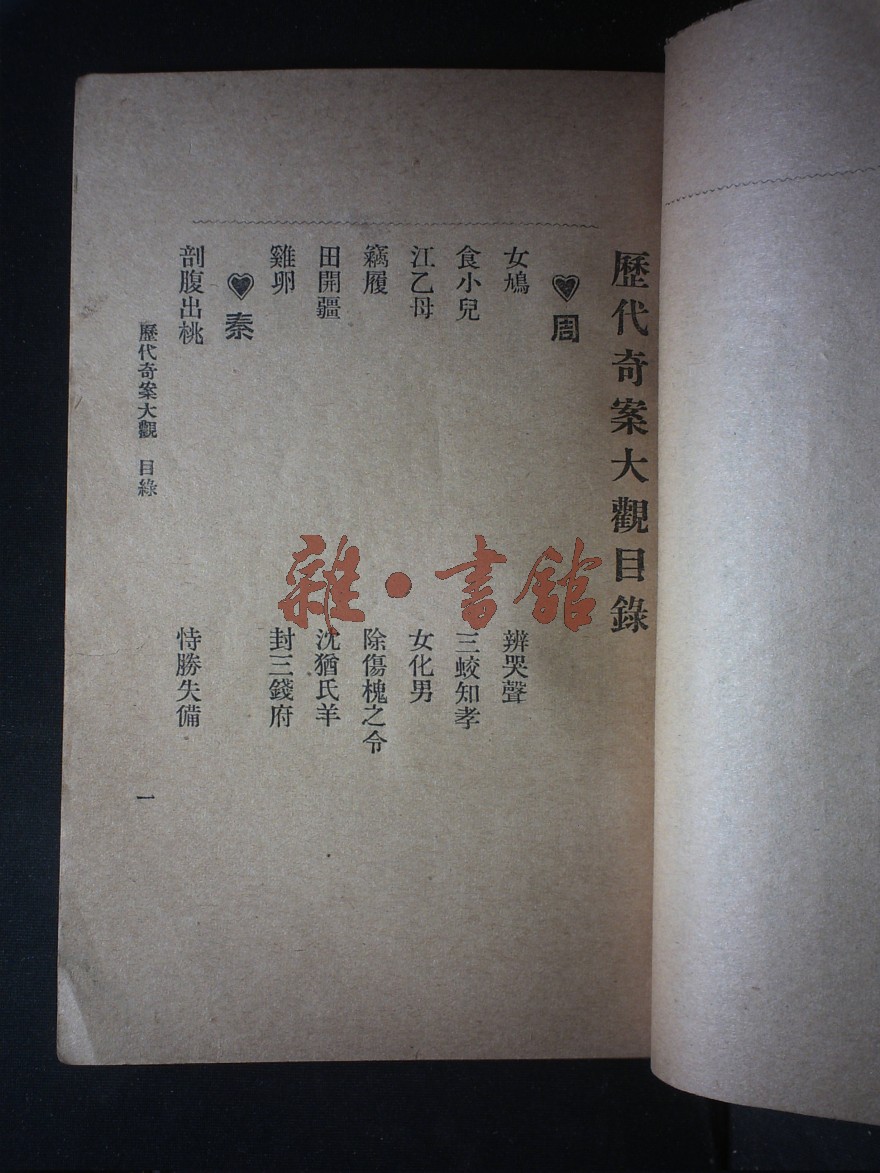 歷代奇案大觀目錄
周
女鳩
辨哭聲
食小兒
三蛟知孝
江乙母
女化男
竊履
除傷槐之令
田開疆
沈猶氏羊
雞卵
封三錢府
秦
剖腹出桃
恃勝失備
歷代奇案大觀 目錄
一
雜・書館